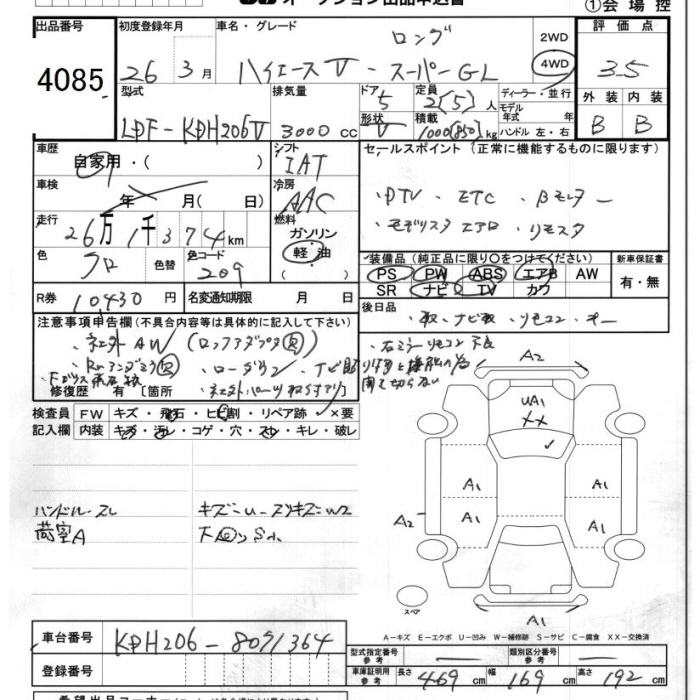 オークション出品申込書 ①会場控
出品番号 初度登録年月 車名・グレード ロング 2WD 評価点
4085 26 3月 ハイエースV - スーパーGL 4WD 3.5
型式 排気量 ドア 5 定員 2(5)人 ディーラー・並行 外装 内装
LDF-KDH206V 3000cc 形状 V 積載 1000(850)kg モデル年式 年式 ハンドル 左・右 B B
車歴 自家用・( ) シフト IAT セールスポイント(正常に機能するものに限ります)
車検 年 月(日) 冷房 AAC ・DTV ・ETC ・Bモニター
走行 26万1千374km 燃料 ガソリン 軽・油 ・モデリスタエアロ ・リモスタ
色 クロ 色替 色コード 209 装備品(純正品に限り○をつけてください) 新車保証書
PS PW ABS エアB AW 有・無
SR ナビ TV カワ
R券 10,430円 名変通知期限 月 日 後日品
・取、ナビ取、リモコン、
注意事項申告欄(不具合内容等は具体的に記入して下さい)
・社外AW
修復歴 有 [箇所
検査員 FW キズ・飛石・ヒビ割・リペア跡・×要
記入欄 内装 キズ・汚レ・コゲ・穴・スレ・キレ・破レ
ハンドルスレ
荷室A
A2
UA1
XX
A1 A1
A2 A1 A1
スペア
A1
A-キズ E-エクボ U-凹み W-補修跡 S-サビ C-腐食 XX-交換済
車台番号 KDH206-8091364
型式指定番号 参考 類別区分番号 参考
登録番号 車庫証明用 参考 長さ 469cm 幅 169cm 高さ 192cm